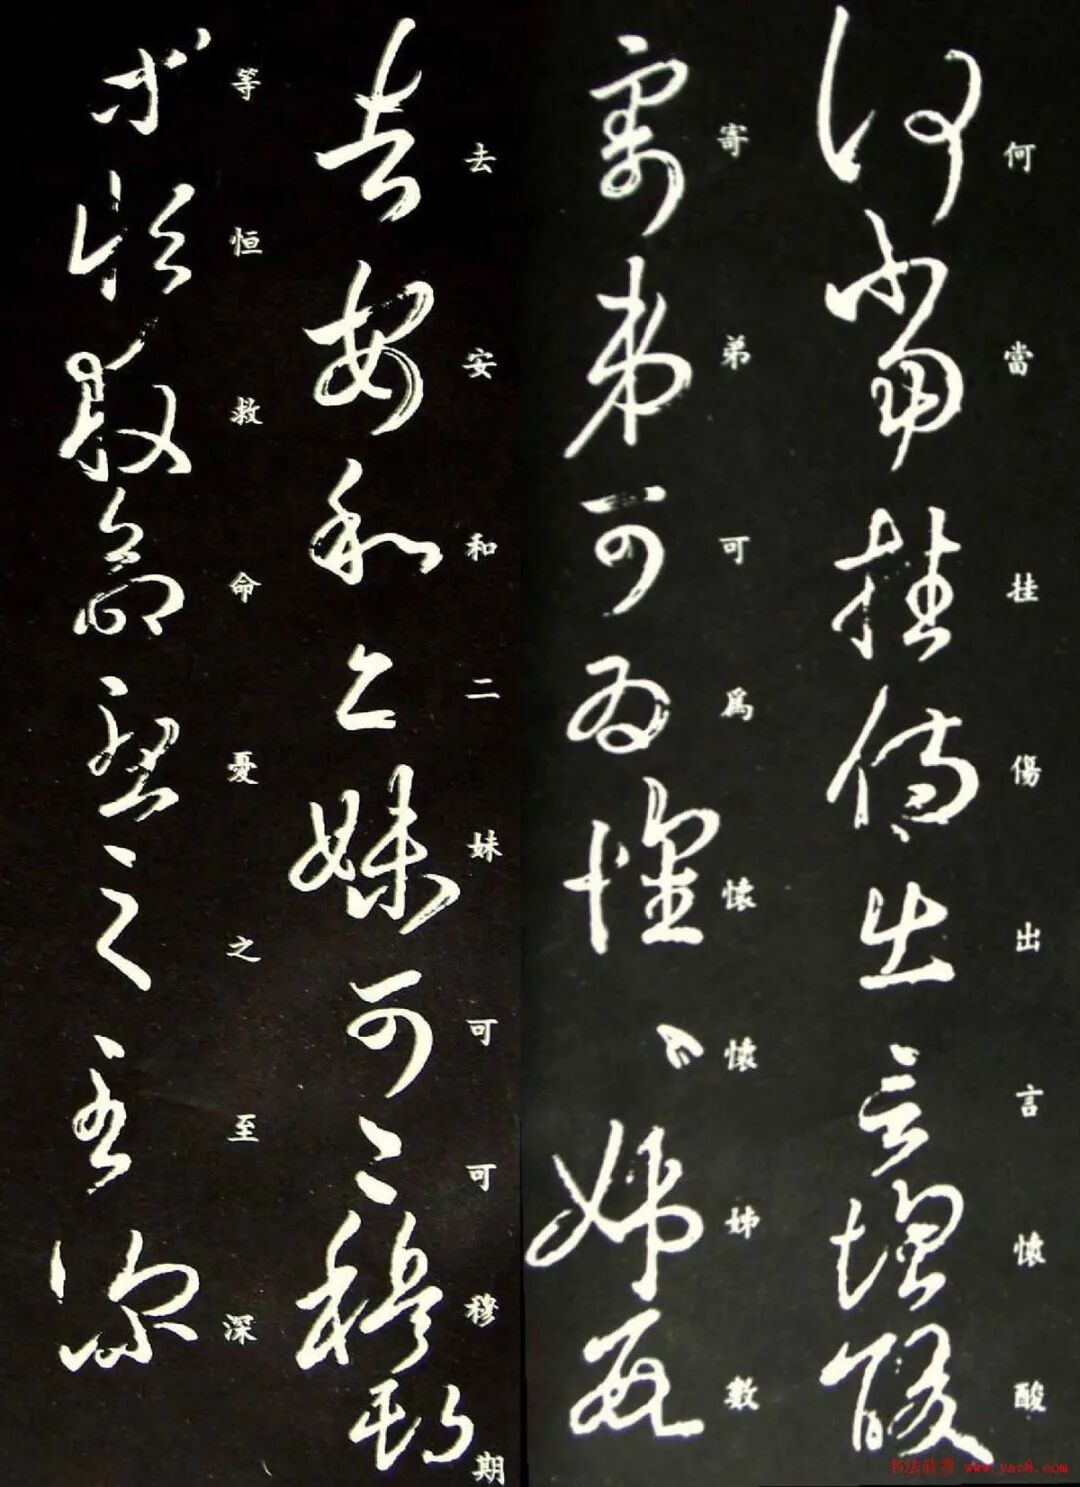 何當挂傷出言懷酸
寄弟可為懷懷姊數
去安和二妹可可穆期
等恒救命憂之至深
书法欣赏 www.yac8.com